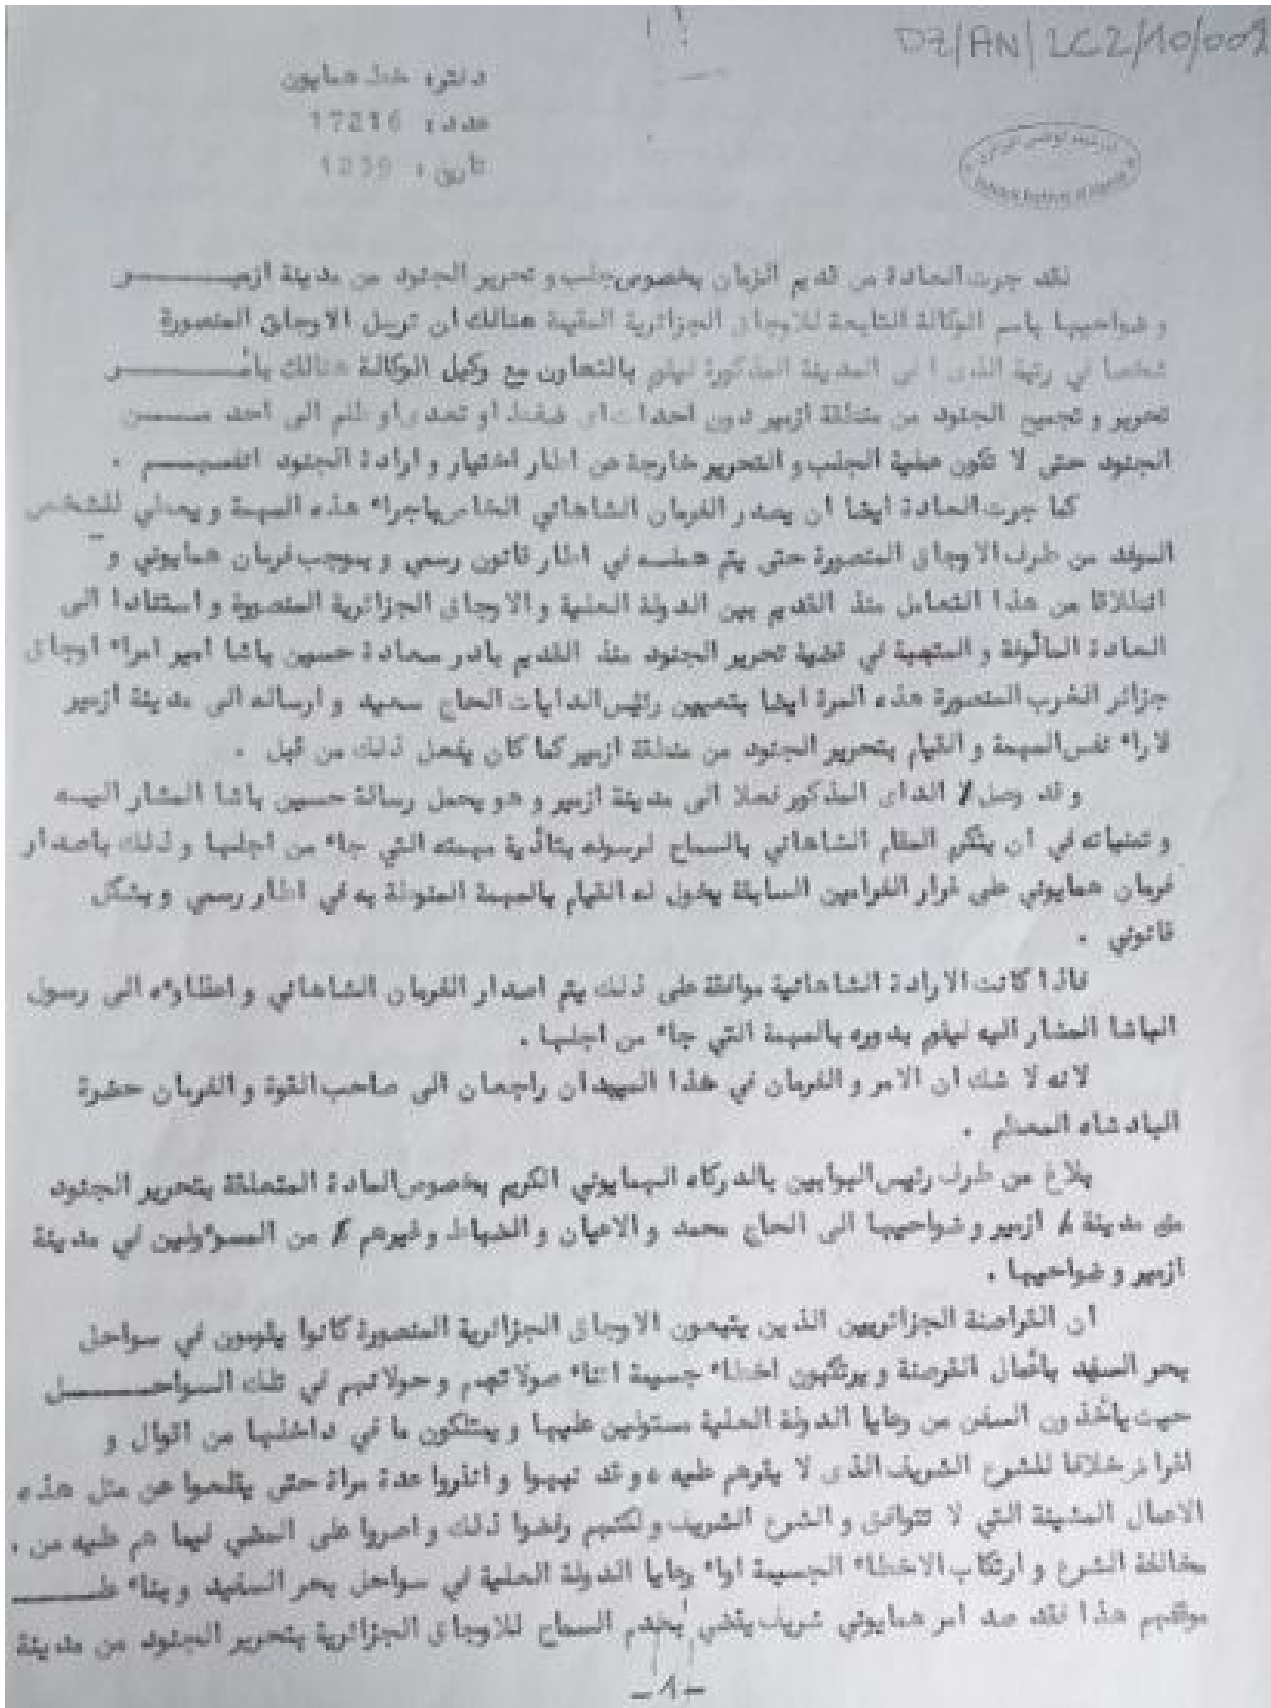 DZ/AN/2C2/10/009
دفتر: خط همايون
عدد: 17216
تاريخ: 1239
لقد جرت العادة من قديم الزمان بخصوص جلب و تحرير الجنود من مدينة ازميـــــر
و ضواحيها باسم الوكالة التابعة للاوجاق الجزائرية المقيمة هنالك ان ترسل الاوجاق المنصورة
شخصا في رتبة الداى الى المدينة المذكورة ليقوم بالتعاون مع وكيل الوكالة هنالك بأمـــــر
تحرير و تجميع الجنود من منطقة ازمير دون احداث اى ضغط او تعدى او ظلم الى احد مـــــن
الجنود حتى لا تكون عملية الجلب و التحرير خارجة عن اطار اختيار و ارادة الجنود انفسهـــم .
كما جرت العادة ايضا ان يصدر الفرمان الشاهاني الخاص باجراء هذه المهمة و يعطي للشخص
الموفد من طرف الاوجاق المنصورة حتى يتم عملـه في اطار قانون رسمي و بموجب فرمان همايوني و
انطلاقا من هذا التعامل منذ القديم بين الدولة العلية و الاوجاق الجزائرية المنصورة و استنادا الى
العادة المألوفة و المتبعة في قضية تحرير الجنود منذ القديم بادر سعادة حسين باشا امير امراء اوجاق
جزائر الغرب المنصورة هذه المرة ايضا بتعيين رئيس الدايات الحاج سعيد و ارساله الى مدينة ازمير
لاراء نفس المهمة و القيام بتحرير الجنود من منطقة ازمير كما كان يفعل ذلك من قبل .
و قد وصل الداى المذكور فعلا الى مدينة ازمير و هو يحمل رسالة حسين باشا المشار اليـه
و تمنياته في ان يتكرم المقام الشاهاني بالسماح لرسوله بتأدية مهمته التي جاء من اجلها و ذلك باصدار
فرمان همايوني على غرار الفرامين السابقة يخول له القيام بالمهمة المنوطة به في اطار رسمي و بشكل
قانوني .
فاذا كانت الارادة الشاهانية موافقة على ذلك يتم اصدار الفرمان الشاهاني و اعطاؤه الى رسول
الباشا المشار اليه ليقوم بدوره بالمهمة التي جاء من اجلها .
لانه لا شك ان الامر و الفرمان في هذا الميدان راجعان الى صاحب القوة و الفرمان حضرة
البادشاه المعظم .
بلاغ من طرف رئيس البوابين بالدركاه الهمايوني الكريم بخصوص العادة المتعلقة بتحرير الجنود
من مدينة ازمير و ضواحيها الى الحاج محمد و الاعيان و الضباط و غيرهم من المسؤولين في مدينة
ازمير و ضواحيها .
ان القراصنة الجزائريين الذين يتبعون الاوجاق الجزائرية المنصورة كانوا يقومون في سواحل
بحر السفيد بأعمال القرصنة و يرتكبون اخطاء جسيمة اثناء صولاتهم و جولاتهم في تلك السواحـــــل
حيث يأخذون السفن من رعايا الدولة العلية مستولين عليها و يمتلكون ما في داخلها من اموال و
اغراض خلافا للشرع الشريف الذى لا يقرهم عليه ، و قد نبهوا و انذروا عدة مراة حتى يقلعوا عن مثل هذه
الاعمال المشينة التي لا تتوافق و الشرع الشريف و لكنهم رفضوا ذلك و اصروا على المضي فيما هم عليه من .
مخالفة الشرع و ارتكاب الاخطاء الجسيمة ازاء رعايا الدولة العلية في سواحل بحر السفيد و بناء علـــــى
موقفهم هذا فقد صد امر همايوني شريف يقضي بعدم السماح للاوجاق الجزائرية بتحرير الجنود من مدينة
-1-